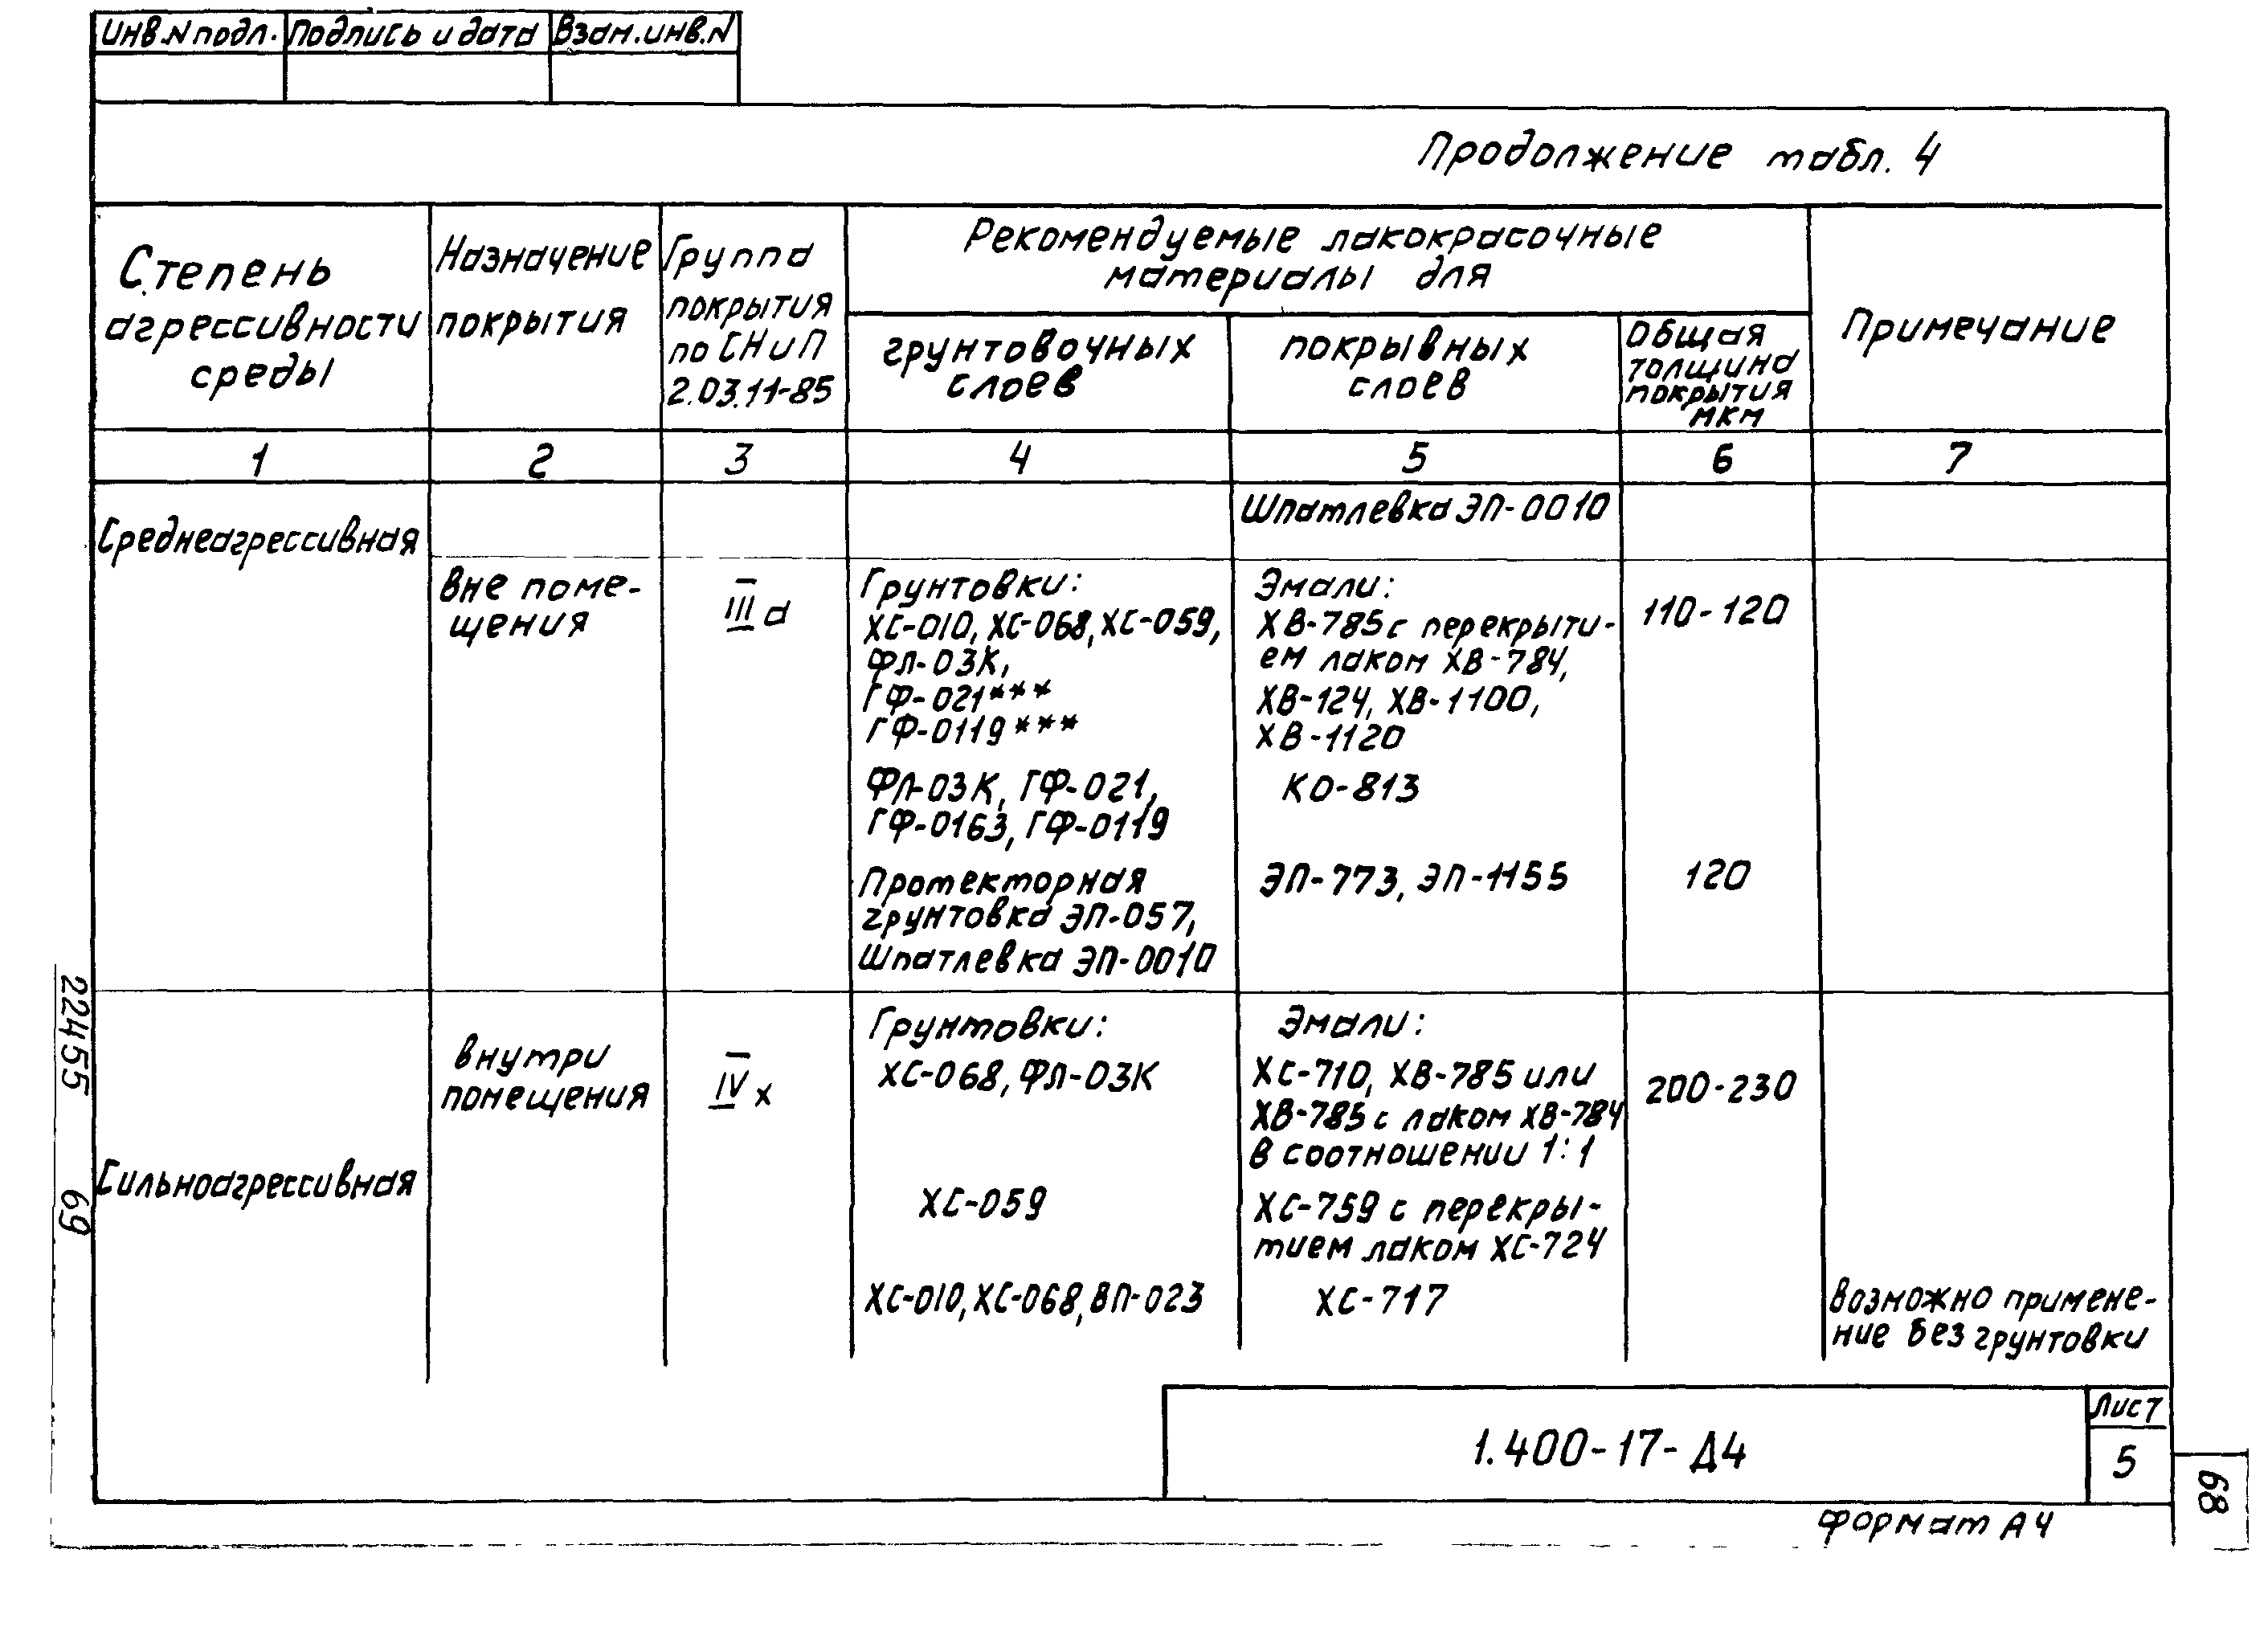 Инв.N подл. Подпись и дата Взам.инв.N
Продолжение табл. 4
Степень
агрессивности
среды
Назначение
покрытия
Группа
покрытия
по СНиП
2.03.11-85
Рекомендуемые лакокрасочные
материалы для
грунтовочных
слоев
покрывных
слоев
Общая
толщина
покрытия
мкм
Примечание
1 2 3 4 5 6 7
Среднеагрессивная
Шпатлевка ЭП-0010
вне поме-
щения
III а
Грунтовки:
ХС-010, ХС-068, ХС-059,
ФЛ-03К,
ГФ-021***
ГФ-0119***
Эмали:
ХВ-785 с перекрыти-
ем лаком ХВ-784,
ХВ-124, ХВ-1100,
ХВ-1120
110-120
ФЛ-03К, ГФ-021,
ГФ-0163, ГФ-0119
КО-813
Протекторная
грунтовка ЭП-057,
Шпатлевка ЭП-0010
ЭП-773, ЭП-1155
120
Сильноагрессивная
внутри
помещения
IV х
Грунтовки:
ХС-068, ФЛ-03К
Эмали:
ХС-710, ХВ-785 или
ХВ-785 с лаком ХВ-784
в соотношении 1:1
200-230
ХС-059
ХС-759 с перекры-
тием лаком ХС-724
ХС-010, ХС-068, ВЛ-023
ХС-717
возможно примене-
ние без грунтовки
22455 69
1.400-17-Д4
Лист
5
68
Формат А4